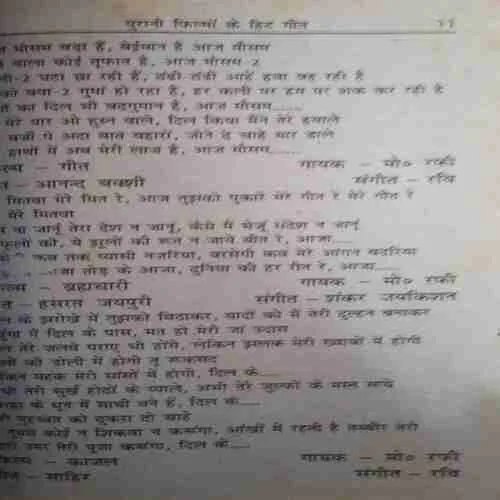 पुरानी फिल्मों के हिट गीत ११
मौसम बड़ा है, बेईमान है आज मौसम
वाला कोई तूफान है, आज मौसम-2
-2 घटा छा रही है, ठंडी ठंडी आहें हवा भर रही है
क्या-2 गुमां हो रहा है, हर कली पर हम पर शक कर रही है
का दिल भी बदगुमान है, आज मौसम......
मेरे यार ओ हुस्न वाले, दिल किया मैंने तेरे हवाले
मर्जी पे अदा बात बहारा, जीते दे चाहे मार डाले
हाथों में अब मेरी लाज है, आज मौसम......
- गीत गायक - मो० रफी
- आनन्द बक्शी संगीत - रवि
मितवा मेरे मित रे, आज तुझको पुकारे मेरे गीत रे मेरे गीत रे
मेरे मितवा
ना जानूं तेरा देश न जानू, कैसे मैं भेजूं संदेश न जानूं
फूलों की, ये झूलों की रूत न जाये बीत रे, आजा.....
कब तक प्यासी नजरिया, बरसेगी कब मेरे आंगन बदरिया
तोड़ के आजा, दुनिया की हर रीत रे, आजा.....
- ब्रह्मचारी गायक - मो० रफी
- हसरत जयपुरी संगीत - शंकर जयकिशन
के झरोखे में तुझको बिठाकर, यादों को मैं तेरी दुल्हन बनाकर
में दिल के पास, मत हो मेरी जां उदास
तेरे जलवे पराए भी होंगे, लेकिन झलक मेरी ख्वाबों में होगी
की डोली में होगी तू रूकसद
महक तेरी सांसों में होगी, दिल के.....
भी तेरे सुर्ख होठों के प्याले, अभी तेरे जुल्फों के मस्त साये
के धुन में साथी बने हैं, दिल के.....
मुहब्बत को ठुकरा दो चाहे
तुमसे कोई न शिकवा न करूंगा, आंखों में रहती है तस्वीर तेरी
उमर तेरी पूजा करूंगा, दिल के.....
- काजल गायक - मो० रफी
- साहिर संगीत - रवि